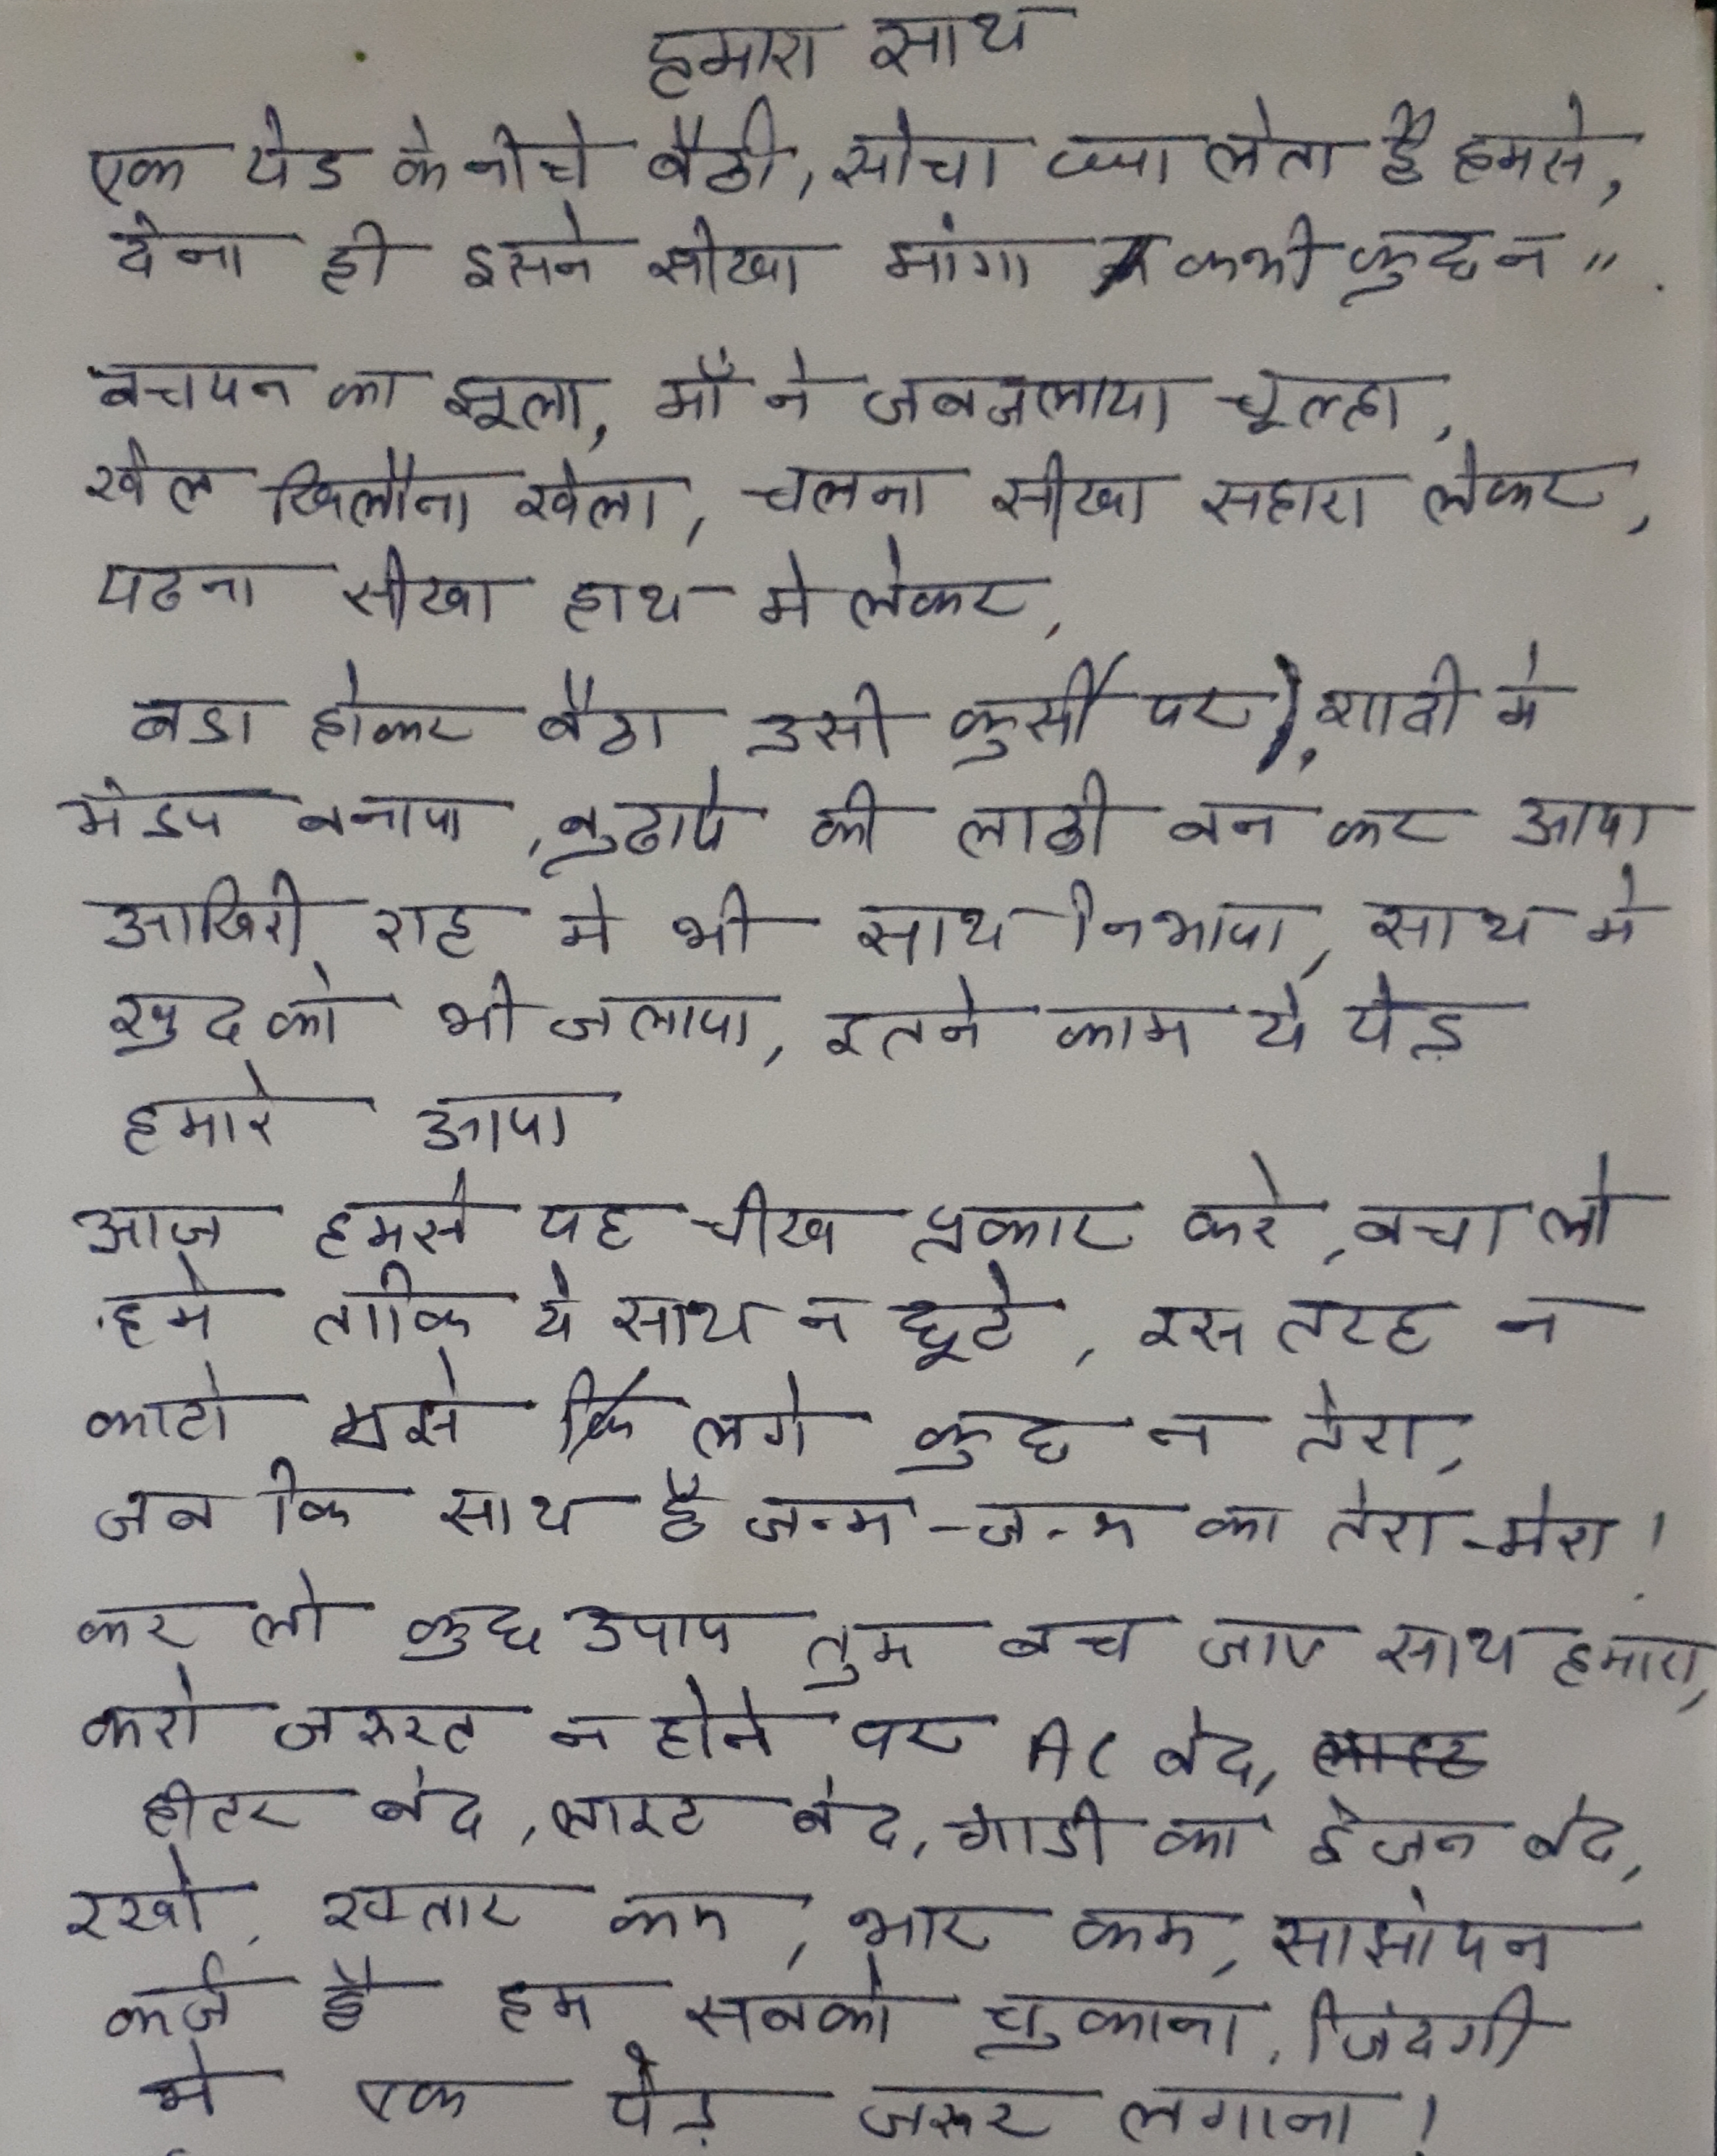 हमारा साथ
एक पेड के नीचे बैठी, सोचा क्या लेता है हमसे,
देना ही इसने सीखा मांगा कभी कुछ न "
बचपन का झूला, माँ ने जब जलाया चूल्हा,
खेल खिलौना खेला, चलना सीखा सहारा लेकर,
पढना सीखा हाथ मे लेकर,
बडा होकर बैठा उसी कुर्सी पर, शादी मे
मंडप बनाया, बुढापे की लाठी बन कर आया
आखिरी राह मे भी साथ निभाया, साथ मे
खुद को भी जलाया, इतने काम ये पेड़
हमारे आया
आज हमसे यह चीख पुकार करे, बचा लो
हमे ताकि ये साथ न छूटे, इस तरह न
काटो मुझसे कि लगे कुछ न तेरा,
जब कि साथ है जन्म-जन्म का तेरा-मेरा!
कर लो कुछ उपाय तुम बच जाए साथ हमारा,
करो जरुरत न होने पर AC बंद,
हीटर बंद, लाइट बंद, गाडी का इंजन बंद,
रखो, रफ्तार कम, भार कम,
कर्ज है हम सबको चुकाना, जिंदगी
मे एक पेड़ जरुर लगाना!